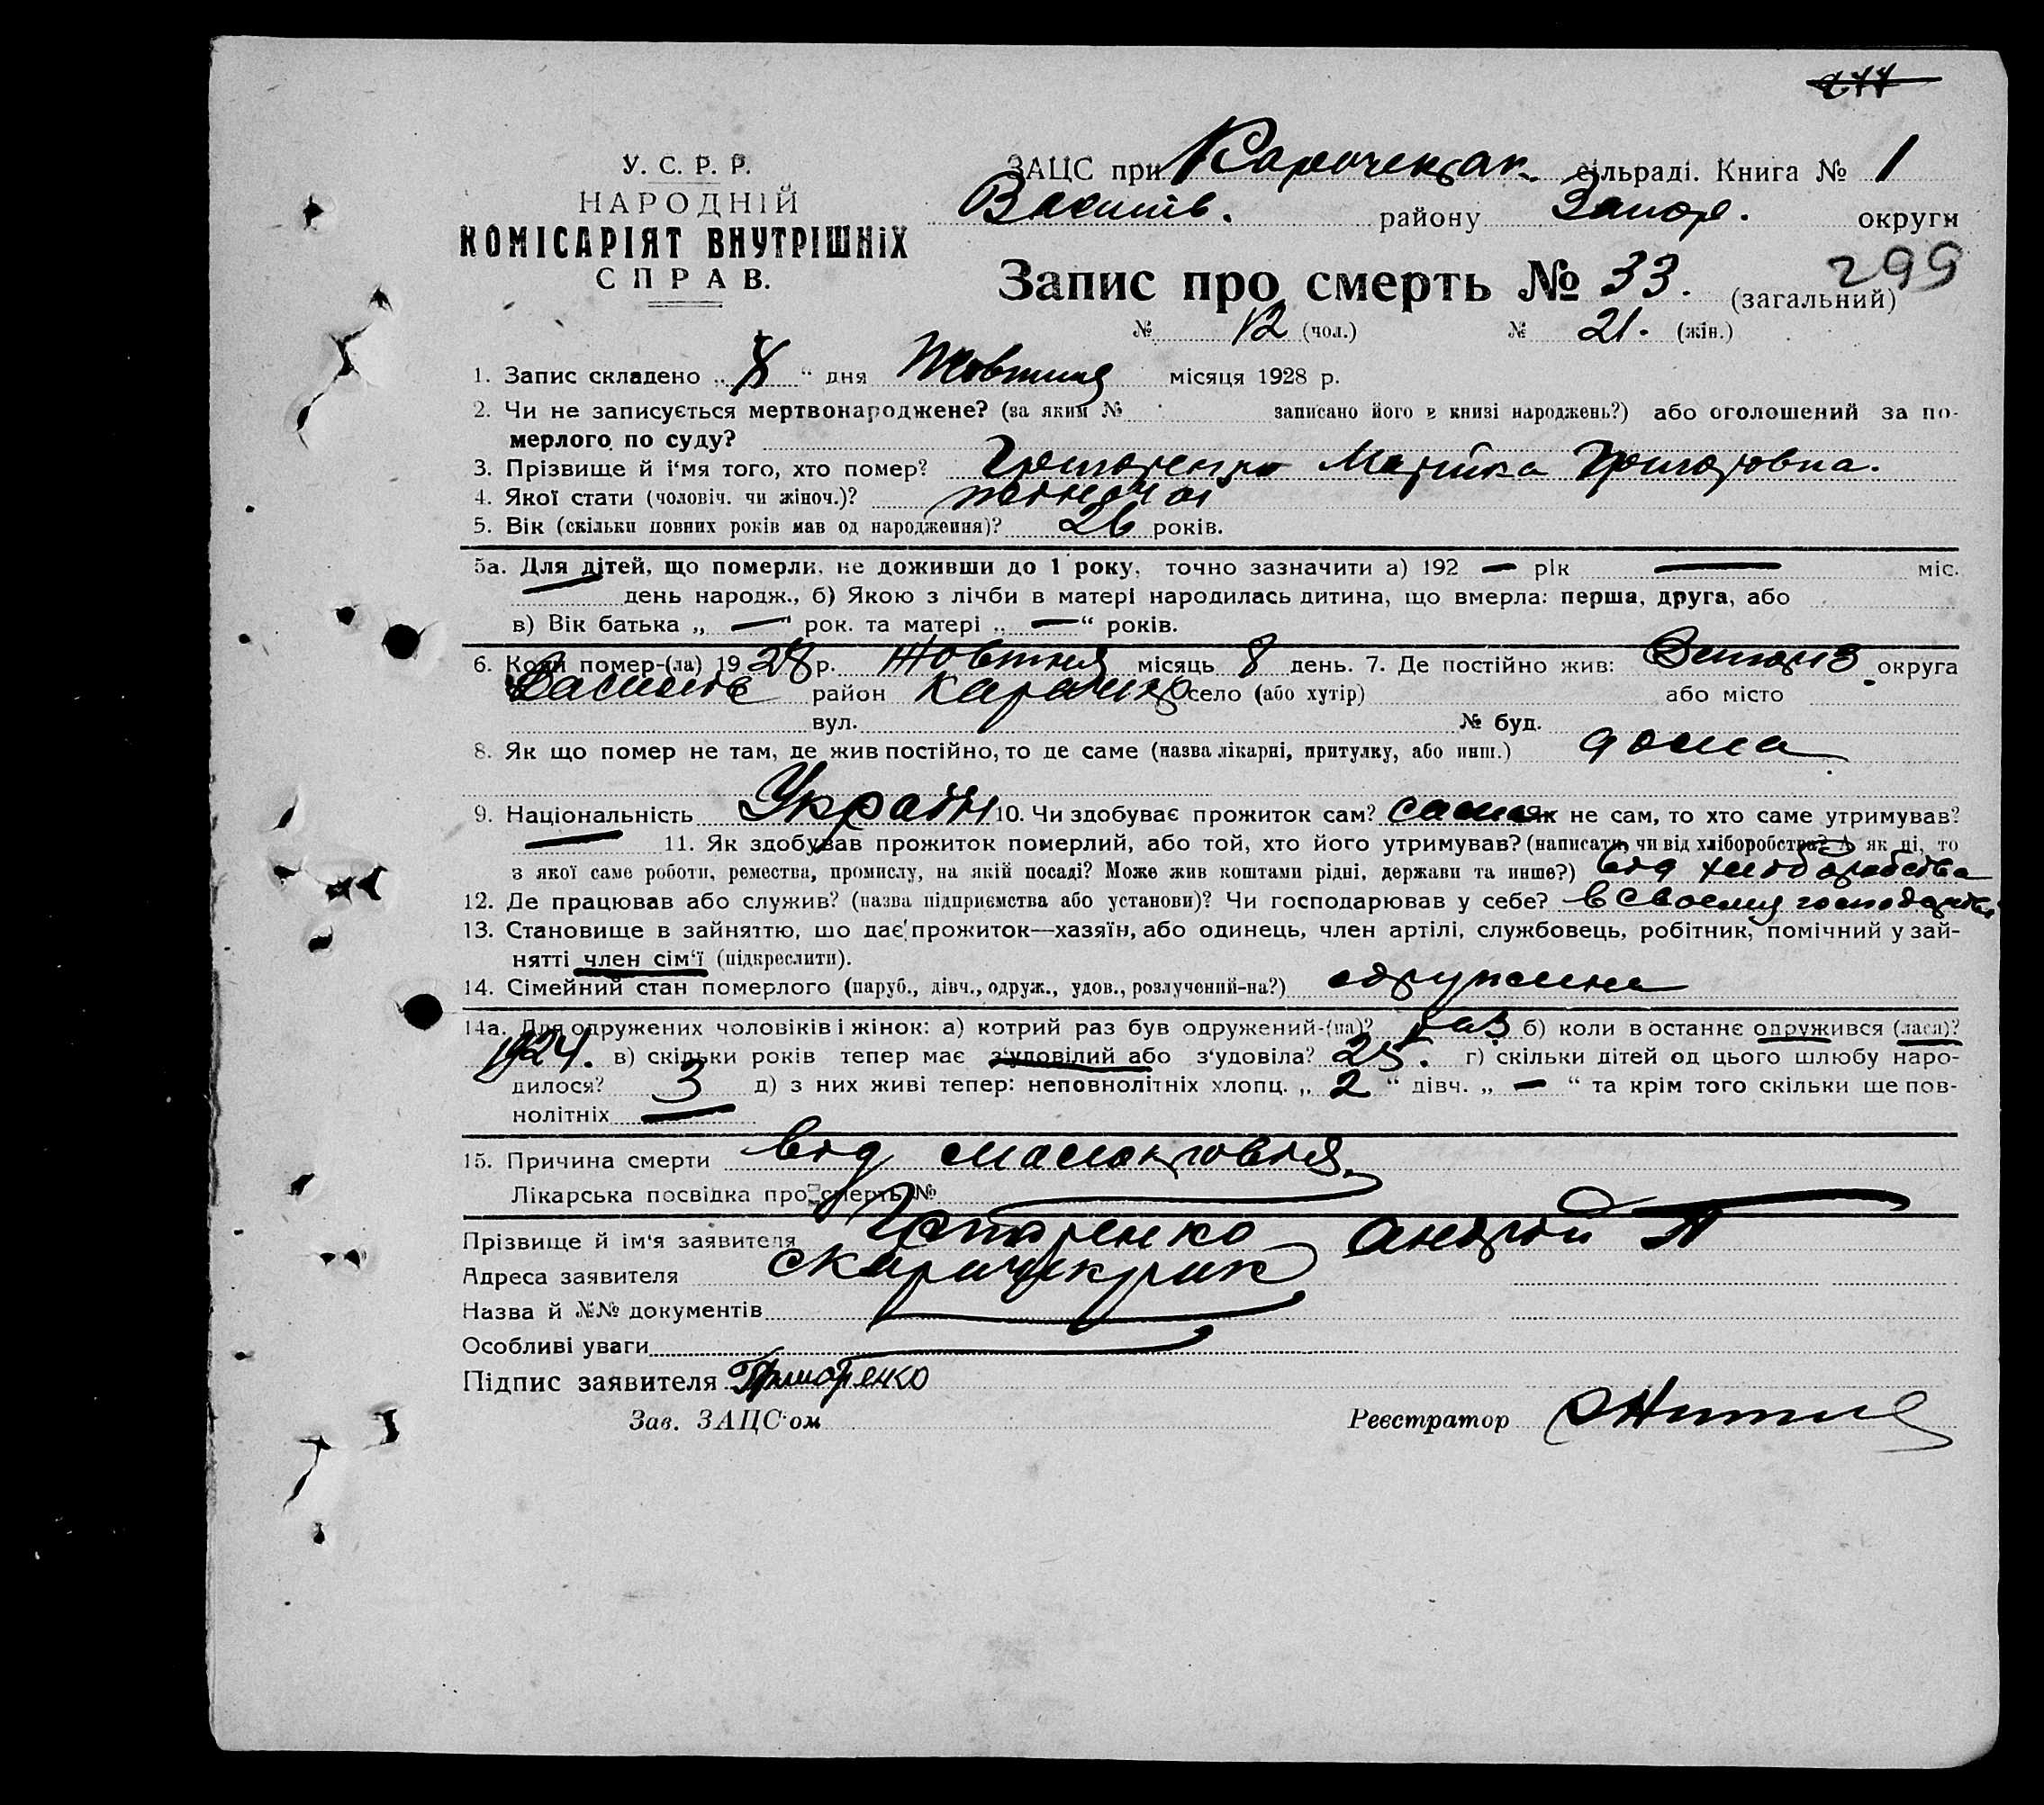 У. С. Р. Р.
НАРОДНІЙ
КОМІСАРІЯТ ВНУТРІШНіХ
СПРАВ.
ЗАЦС при сільраді. Книга № 1
Василів. району Запор. округи
299
Запис про смерть № 33. (загальний)
№ 12 (чол.) № 21. (жін.)
1. Запис складено „ “ дня Жовтня місяця 1928 р.
2. Чи не записується мертвонароджене? (за яким № записано його в книзі народжень?) або оголошений за по-
мерлого по суду?
3. Прізвище й і'мя того, хто помер? Марійка
4. Якої стати (чоловіч. чи жіноч.)? жіночої
5. Вік (скільки повних років мав од народження)? 26 років.
5а. Для дітей, що померли, не доживши до 1 року, точно зазначити а) 192 — рік — міс.
— день народж., б) Якою з лічби в матері народилась дитина, що вмерла: перша, друга, або
в) Вік батька „ — “ рок. та матері „ — “ років.
6. Коли помер-(ла) 1928 р. Жовтня місяць 8 день. 7. Де постійно жив: округа
район село (або хутір) або місто
вул. № буд.
8. Як що помер не там, де жив постійно, то де саме (назва лікарні, притулку, або инш.) дома
9. Національність Україн 10. Чи здобуває прожиток сам? сама Як не сам, то хто саме утримував?
— 11. Як здобував прожиток померлий, або той, хто його утримував? (написати, чи від хліборобства? А як ні, то
з якої саме роботи, ремества, промислу, на якій посаді? Може жив коштами рідні, держави та инше?) від хліборобства
12. Де працював або служив? (назва підприємства або установи)? Чи господарював у себе? в своему
13. Становище в зайняттю, шо дає прожиток—хазяїн, або одинець, член артілі, службовець, робітник, помічний у зай-
нятті член сім'ї (підкреслити).
14. Сімейний стан померлого (паруб., дівч., одруж., удов., розлучений-на?) одружина
14а. Для одружених чоловіків і жінок: а) котрий раз був одружений-(на)? раз б) коли в останнє одружився (лася)?
1924. в) скільки років тепер має з'удовілий або з'удовіла? 25. г) скільки дітей од цього шлюбу наро-
дилося? 3 д) з них живі тепер: неповнолітніх хлопц. „ 2 “ дівч. „ — “ та крім того скільки ще пов-
нолітніх —
15. Причина смерти від
Лікарська посвідка про смерть №
Прізвище й ім'я заявителя Андрій П
Адреса заявителя
Назва й №№ документів
Особливі уваги
Підпис заявителя
Зав. ЗАЦС'ом Реєстратор